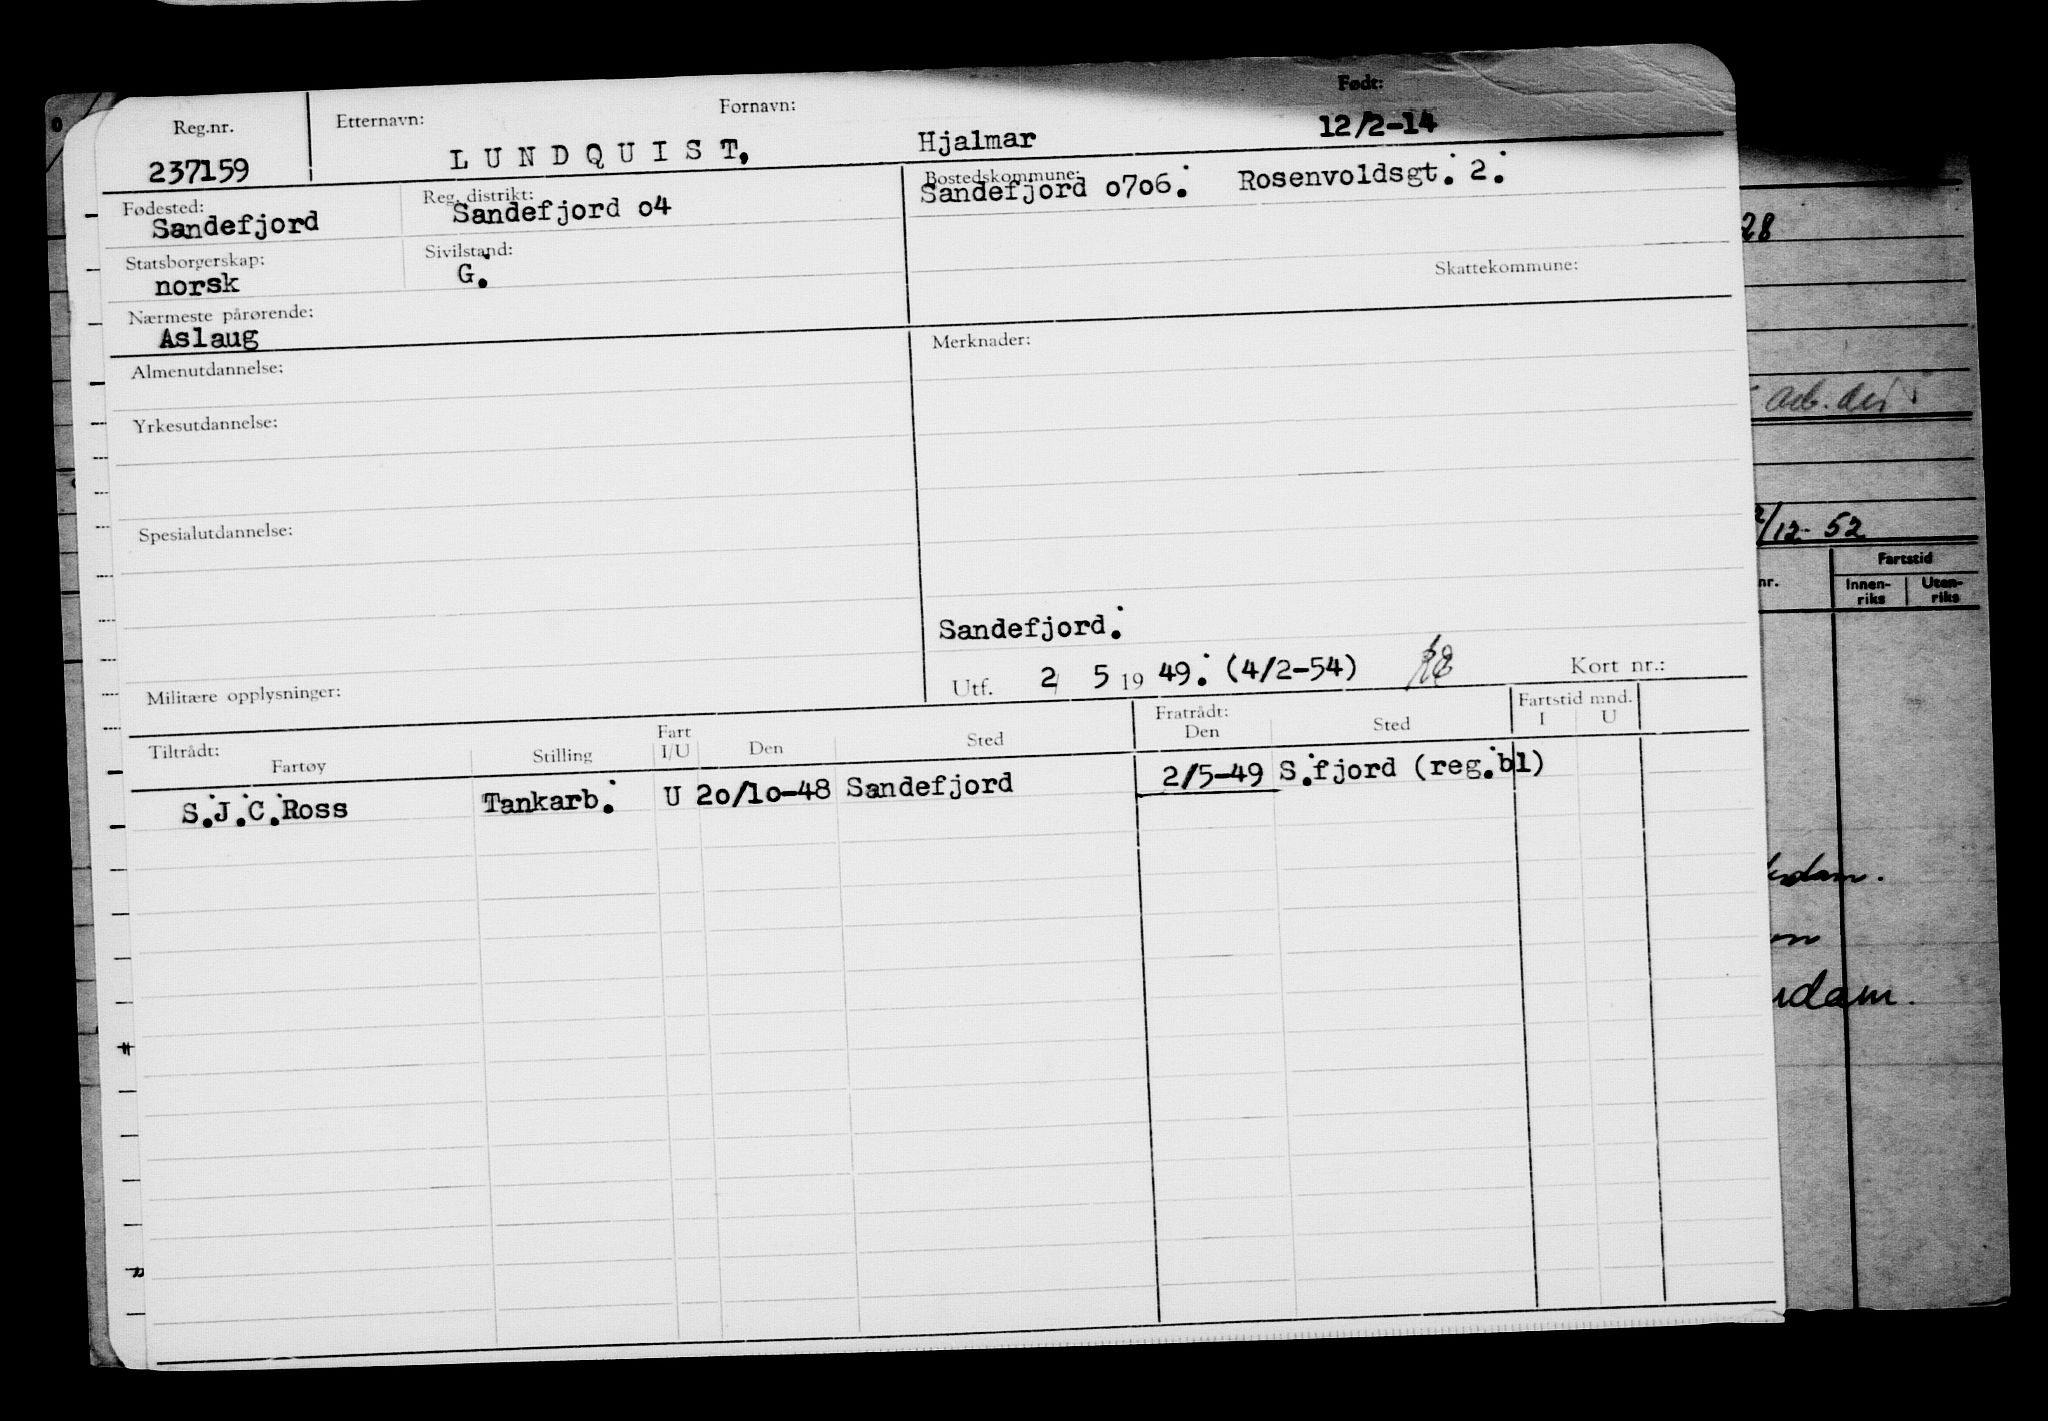 Reg.nr. Etternavn: Fornavn: Født:
237159 L U N D Q U I S T, Hjalmar 12/2-14
Fødested: Reg. distrikt: Bostedskommune:
Sandefjord Sandefjord o4 Sandefjord o7o6. Rosenvoldsgt. 2.
Statsborgerskap: Sivilstand: Skattekommune:
norsk G.
Nærmeste pårørende:
Aslaug
Almenutdannelse: Merknader:
Yrkesutdannelse:
Spesialutdannelse:
Sandefjord.
Militære opplysninger: Utf. 2 5 19 49. (4/2-54) Kort nr.:
Tiltrådt: Fratrådt: Fartstid mnd.
Fartøy Stilling Fart I/U Den Sted Den Sted I U
S.J.C.Ross Tankarb. U 2o/1o-48 Sandefjord 2/5-49 S.fjord (reg.bl)
28
/12-52
nr. Fartstid
Innen-riks Uten-riks
dam.